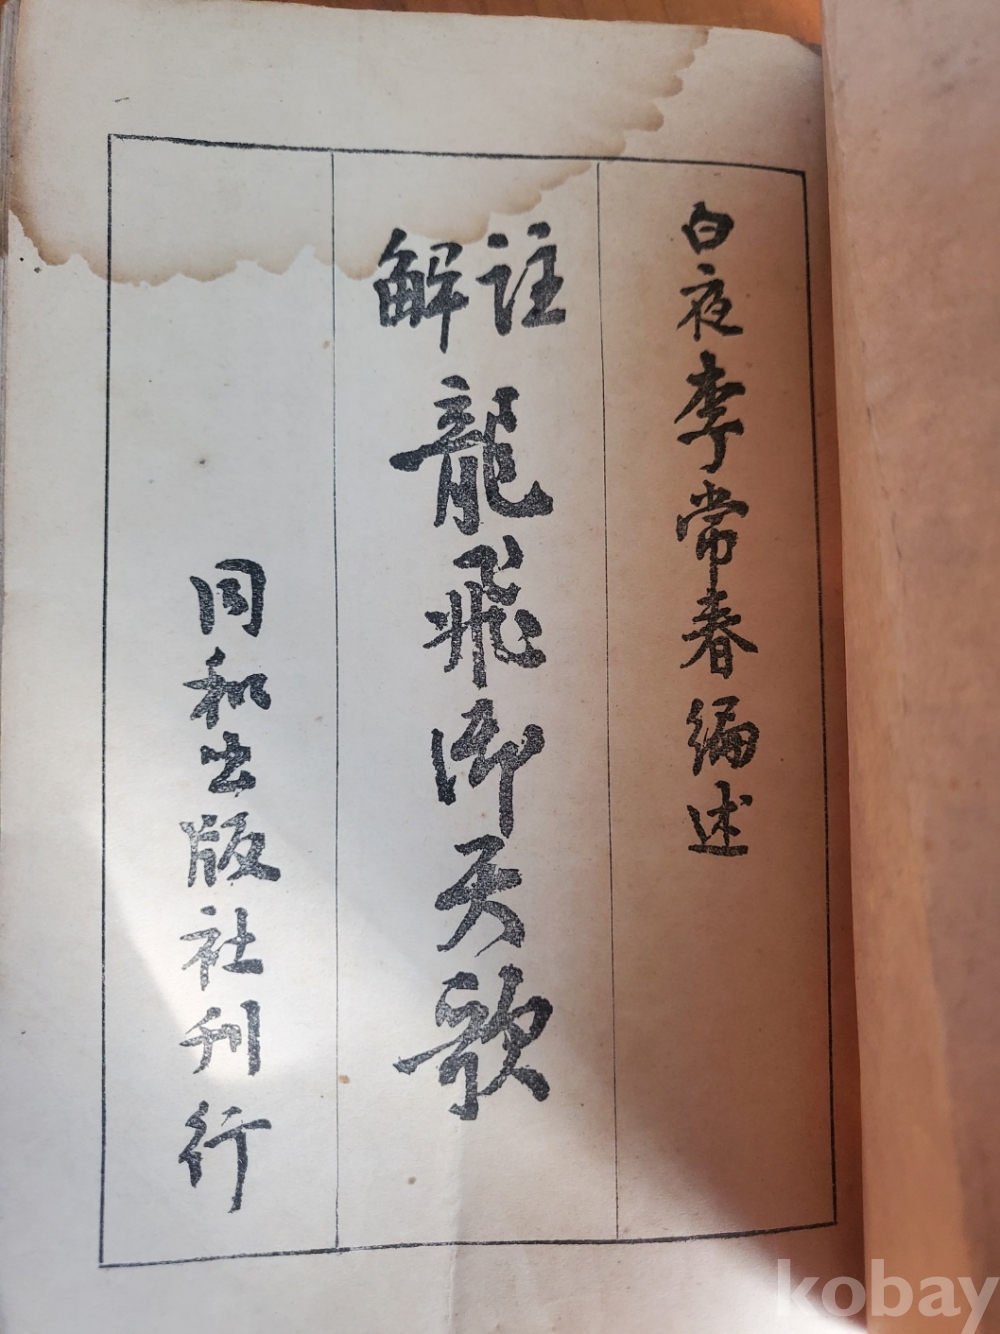 白夜 李常春 編述
註解 龍飛御天歌
同和出版社刊行
kobay